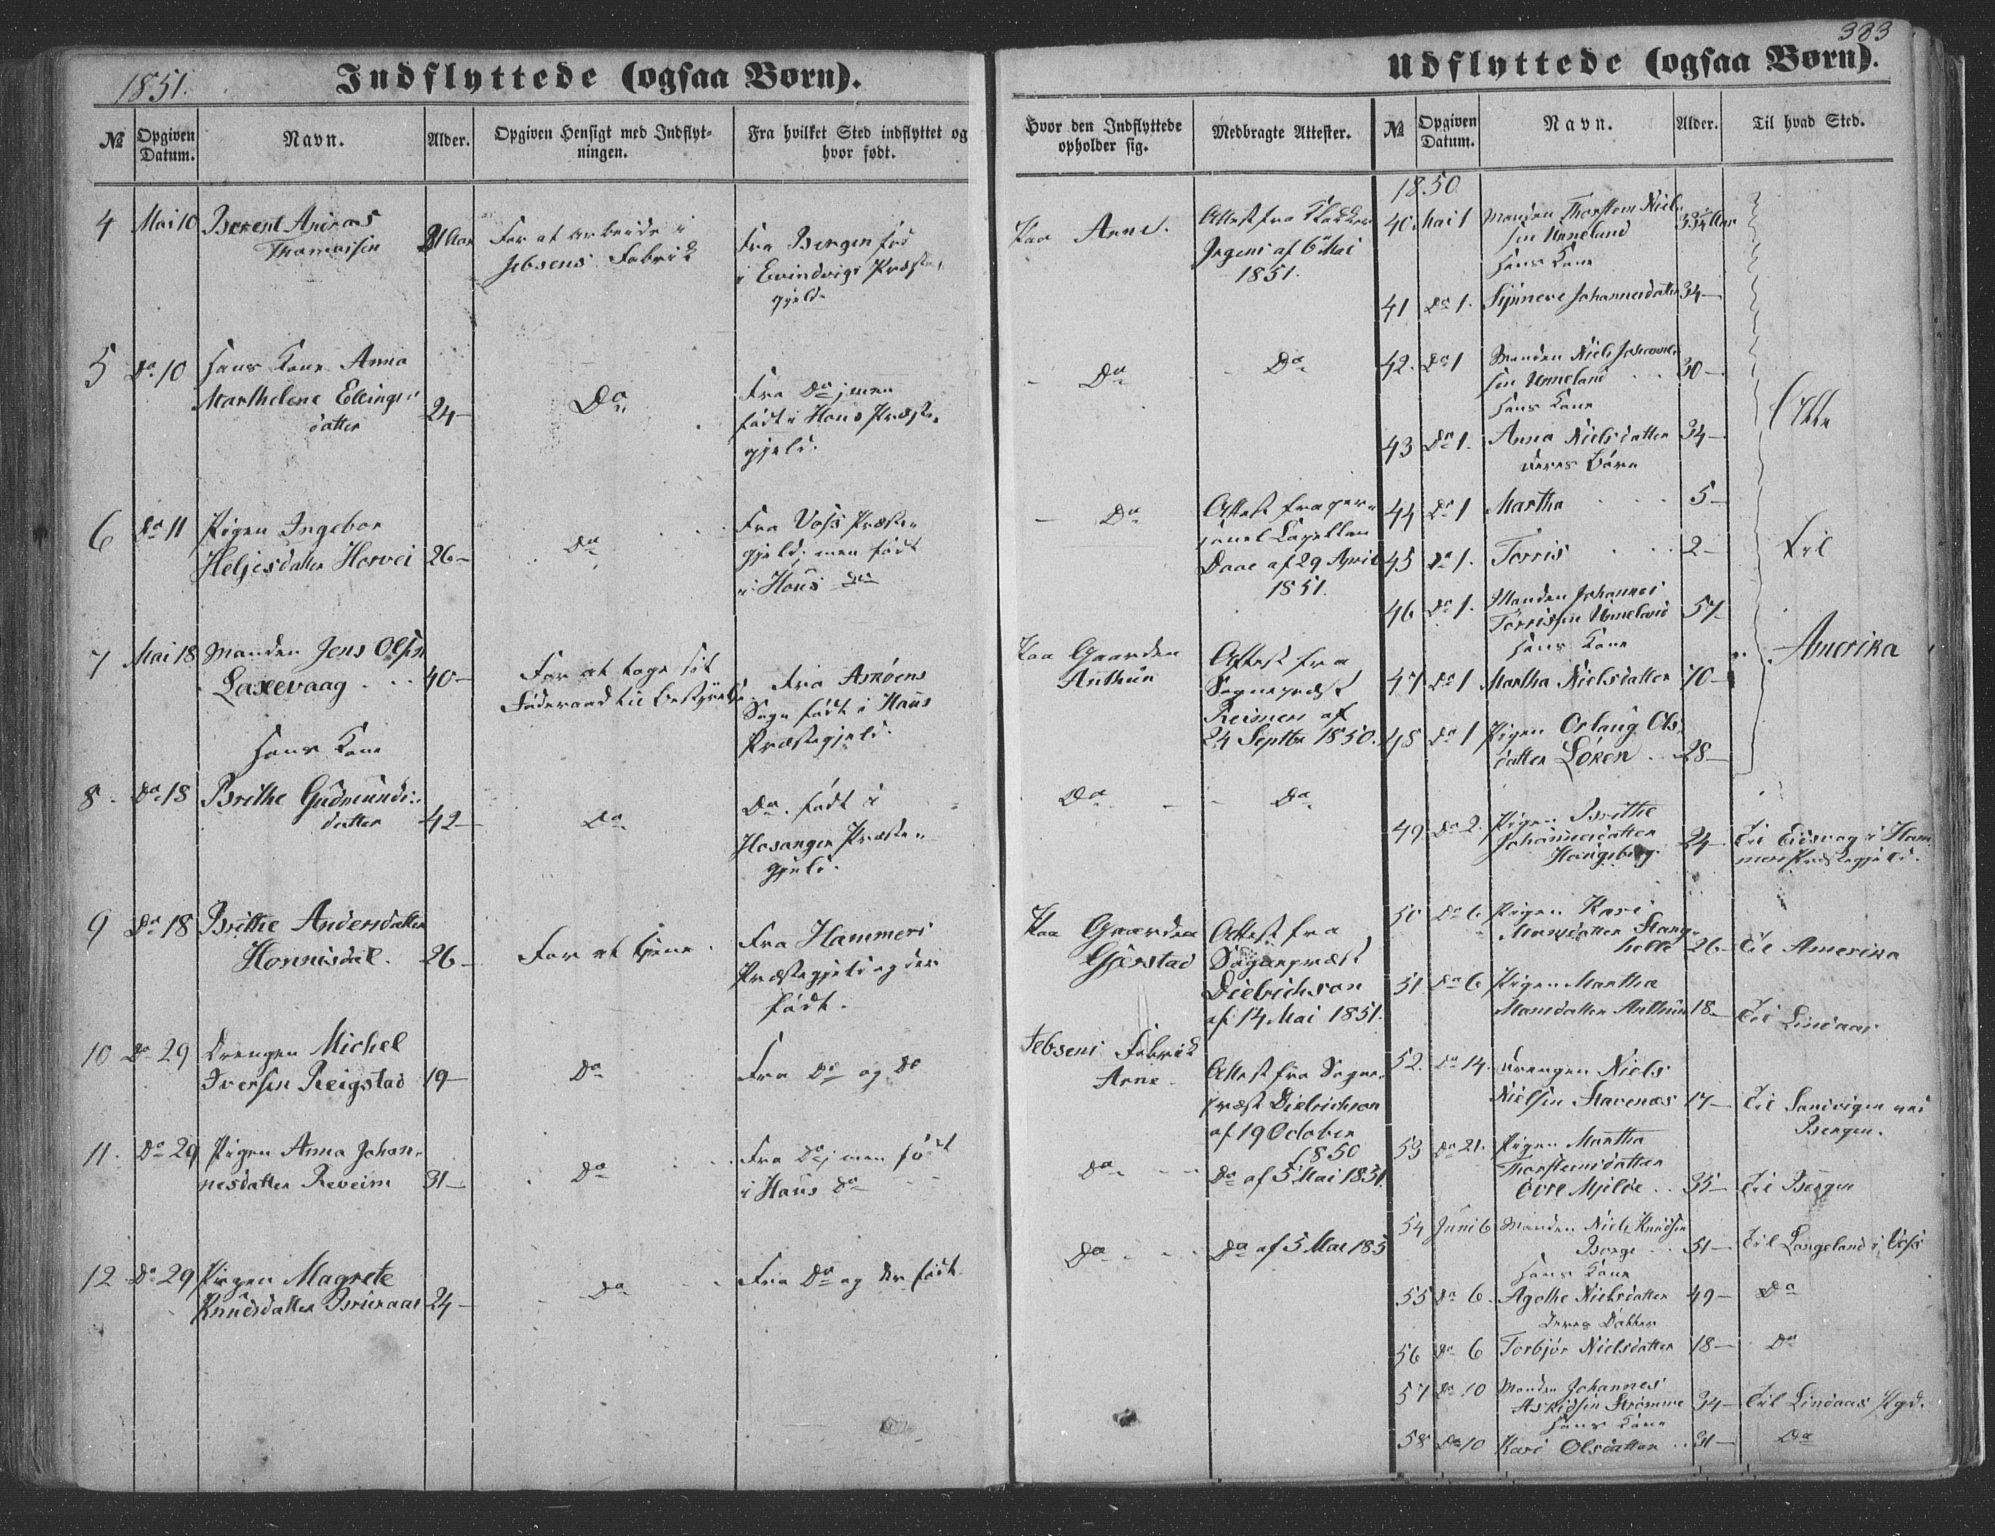 1851.
Indflyttede (ogsaa Børn).
№ Opgiven Datum. Navn. Alder. Opgiven Hensigt med Indflyt-
ningen. Fra hvilket Sted indflyttet og
hvor født.
4 Mai 10 Berent Andreas
Thomassen
For at arbeide i
Jebsens Fabrik
Fra Bergen fød
i Evindvigs Præste-
gjeld
5 Do 10 Hans Kone Anna
Marthelene Ellings-
datter 24
Do
Fra Do; men
født i Haus Præste-
gjeld.
6 Do 11 Pigen Ingebor
Heljesdatter Horvei 26
Do
Fra Voss Præste-
gjeld; men født
i Haus Do
7 Mai 18 Manden Jens Olsen
Laxevaag 40
For at tage sit
Føderaad til Bestyrelse
Fra Askøens
Sogn født i Haus
Præstegjeld.
Hans Kone
8 Do 18 Brithe Gudmunds-
datter 42
Do
Do født i
Hosanger Præste-
gjeld.
9 Do 18 Brithe Andersdatter
Honnisdal. 26
For at tjene
Fra Hammers
Præstegjeld og der
født.
10 Do 29 Drengen Michel
Iversen Reigstad 19
Do
Fra Do og Do
11. Do 29 Pigen Anna Johan-
nesdatter Reveim 31
Do
Fra Do; men født
i Haus Do
12 Do 29 Pigen Magrete
Knudsdatter 24
Do
Fra Do og der født.
383
Udflyttede (ogsaa Børn).
Hvor den Indflyttede
opholder sig. Medbragte Attester. № Opgiven Datum. Navn. Alder. Til hvad Sted.
Paa Arne.
Attest fra
af 6 Mai
1851.
Do Do
Do
Attest fra per-
sonel Capellan
Daae af 29 April
1851.
Paa Gaarden
Authun
Attest fra
Sognepræst
Reimers af
24 Septbr 1850.
Do Do
Paa Gaarden
Gjerstad
Attest fra
Sognepræst
Dietrichson
af 14 Mai 1851.
Jebsens Fabrik
Arne.
Attest fra Sogne-
præst Dietrichson
af 19 October
1850
Do Do af 5 Mai 1851.
Do Do af 5 Mai 185
1850
40 Mai 1 Manden Thorsten Niel-
sen Unneland
Hans Kone
41 Do 1. Synneve Johannesdatter 34
42. Do 1 Manden Niels Johannes-
sen Unneland 30
Hans Kone
43 Do 1. Anna Nielsdatter 34
deres Børn
44 Do 1 Martha 5
45 Do 1. Torris 2
46 Do 1. Manden Johannes
Torrissen Unneland 57
Hans Kone
47 Do 1 Martha Nielsdatter 70
48 Do 1 Pigen Ols-
datter Løken 28
Alle
til
Amerika
49 Do 2. Pigen Brithe
Johannesdatter
Haugsberg 24 Til Eidsvag i Ham-
mers Præstegjeld.
50 Do 6 Pigen Kari
Monsdatter Stang-
helle 26 Til Amerika
51 Do 6 Pigen Martha
Monsdatter Authun 18 Til Lindaas
52. Do 14. Drengen Niels
Nielsen Stavenæs 17 Til Sandvigen ved
Bergen.
53 Do 21. Pigen Martha
Thorstensdatter
Øvre Mjelde 35 Til Bergen
54 Juni 6 Manden Niels Knudsen
Borge 51 Til Langeland i Voss
Hans Kone
55 Do 6. Agathe Nielsdatter 49 Do
deres Datter
56 Do 6 Torbjør Nielsdatter 18 Do
57 Do 10 Manden Johannes
Askidsen Strømme 34 Til Lindaas Pgd.
Hans Kone
58 Do 10 Kari Olsdatter 31 Do